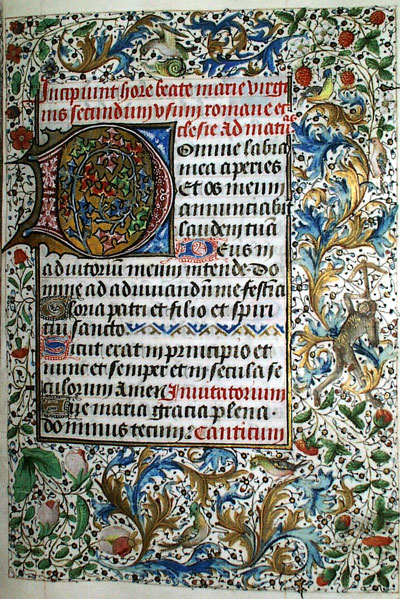 Incipiunt hore beate marie virgi
nis secundum vsum romane ec
clesie Ad matu
Domine labia
mea aperies
Et os meum
annunciabit
laudem tuā
Deus in
adiutorium meum intende Do
mine ad adiuuandū me festīa
Gloria patri et filio et spiri
tui sancto
Sicut erat in principio et
nunc et semper et in secula se
culorum Amen Inuitatorium
Aue maria gracia plena
dominus tecum Canticum